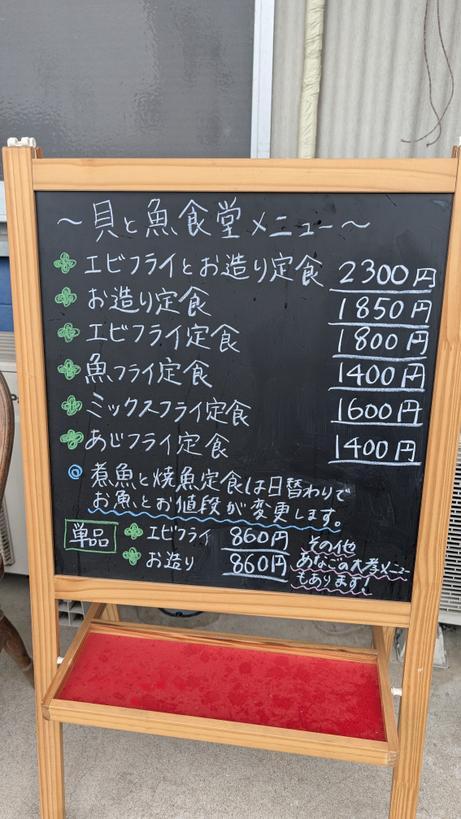 ～貝と魚食堂メニュー～
エビフライとお造り定食 2300円
お造り定食 1850円
エビフライ定食 1800円
魚フライ定食 1400円
ミックスフライ定食 1600円
あじフライ定食 1400円
◎煮魚と焼魚定食は日替わりで
お魚とお値段が変更します。
単品 エビフライ 860円
お造り 860円
その他
あなごの メニュー
もあります!